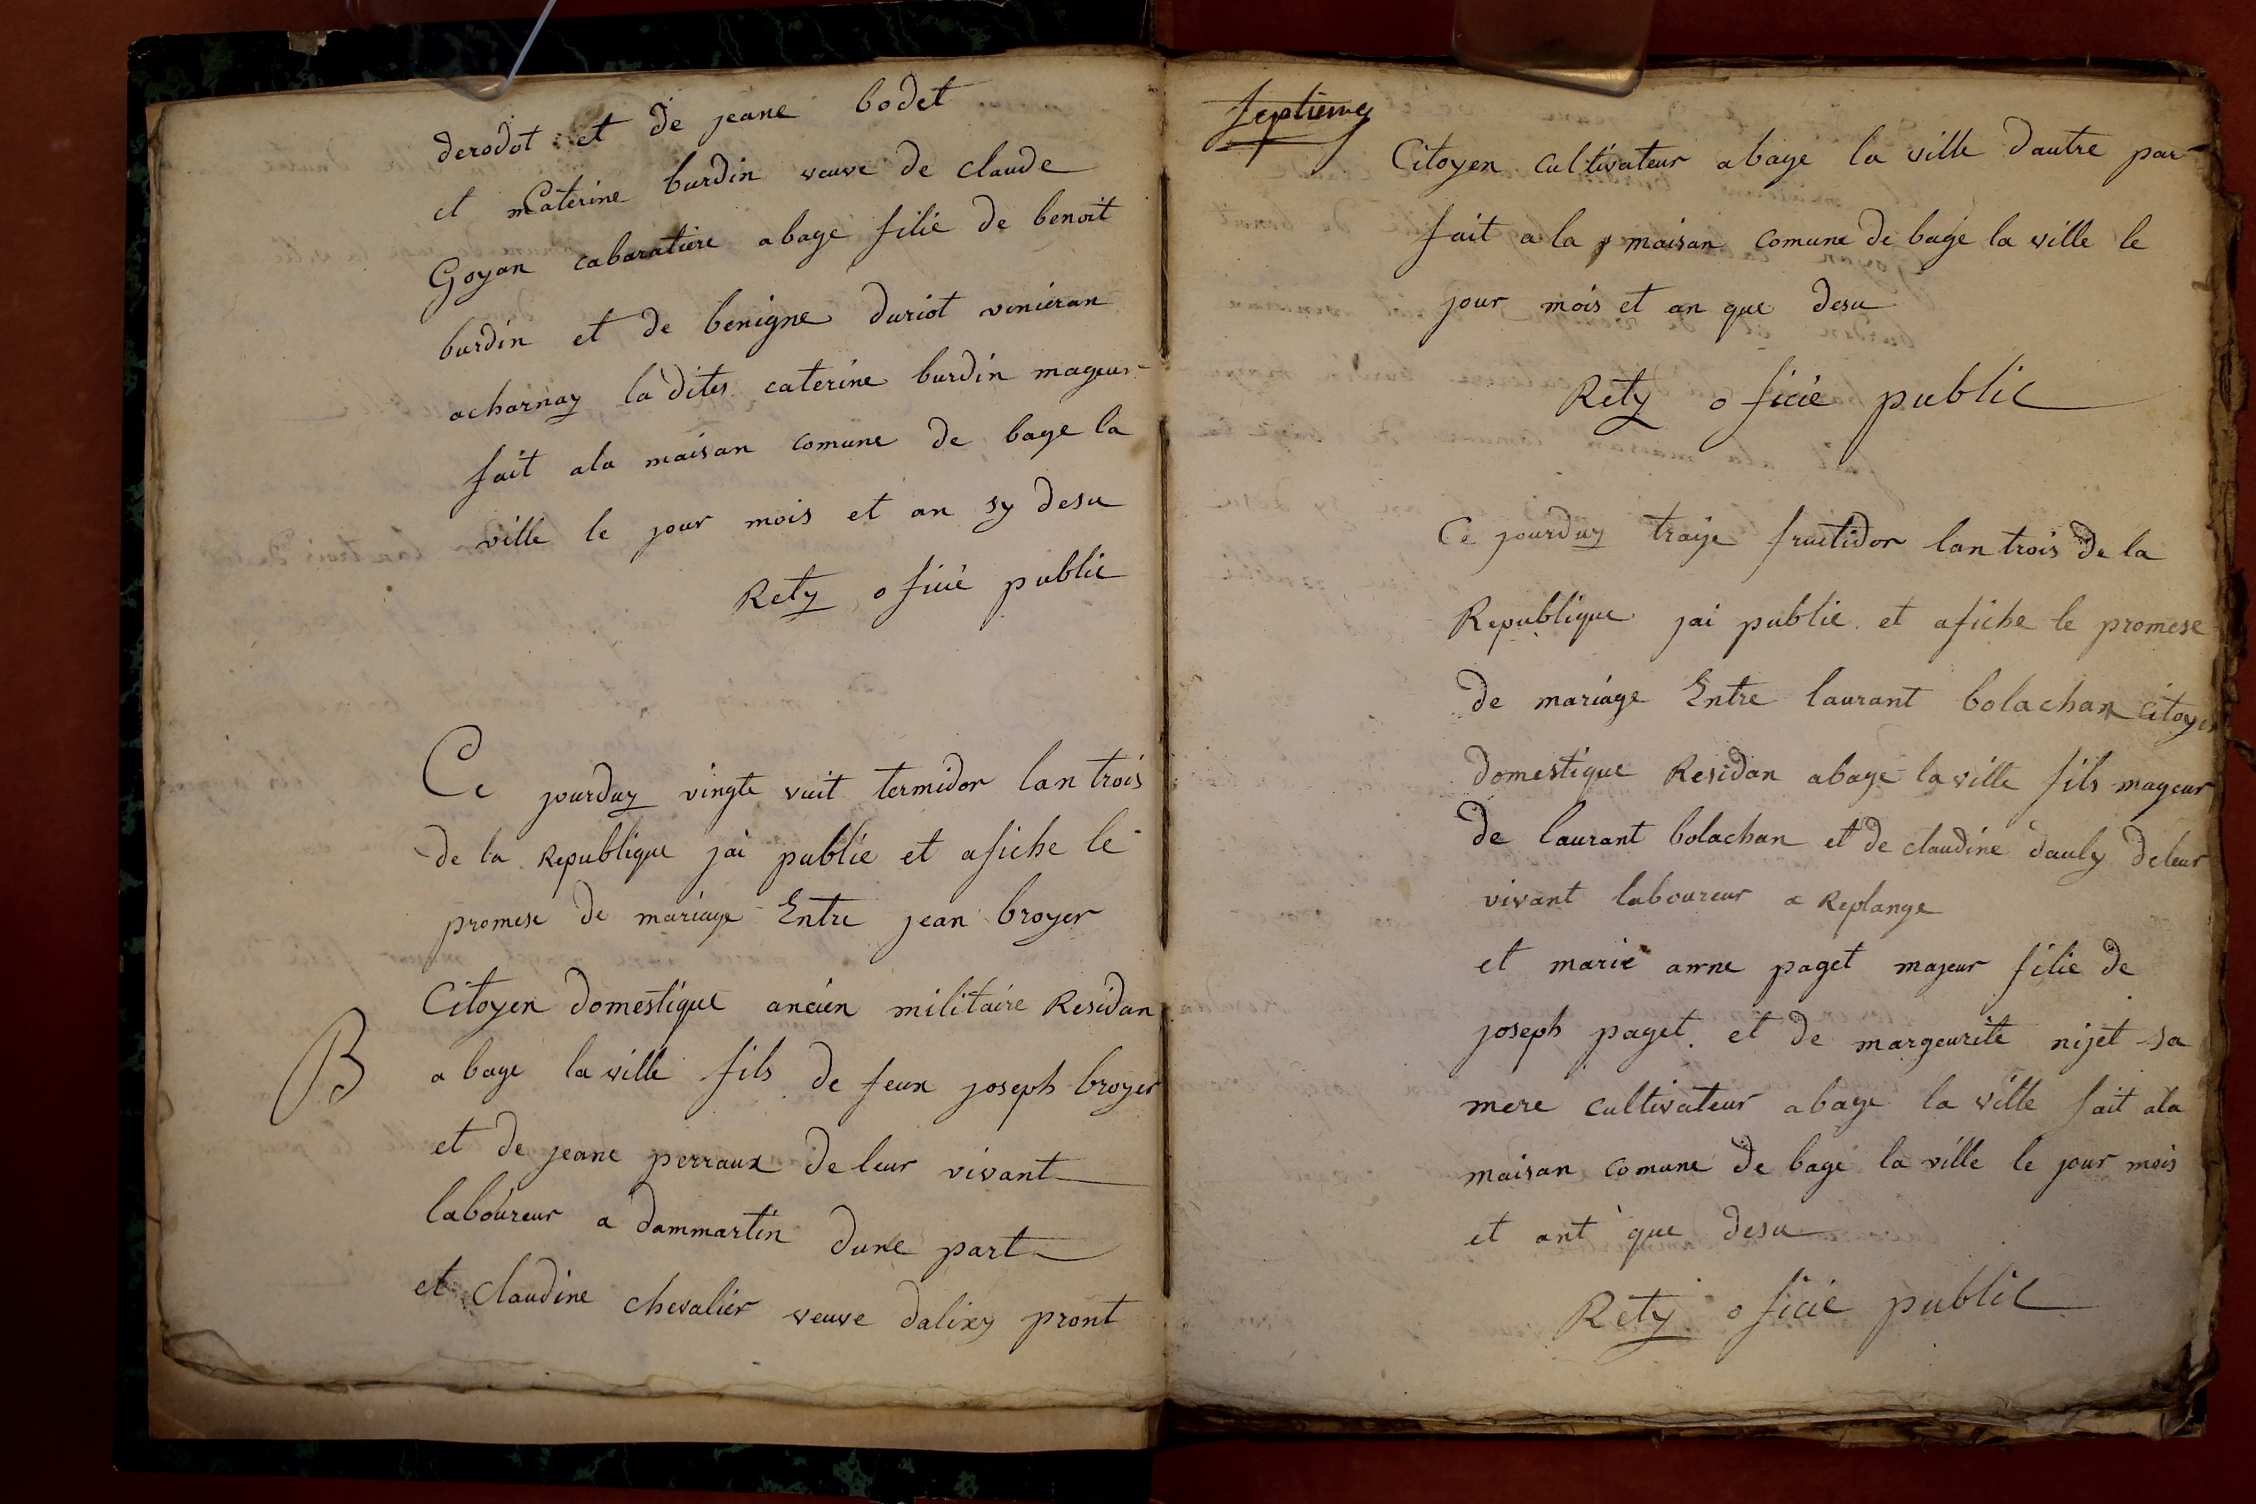 derodot et de jeane bodet
et Caterine burdin veuve de claude
Goyon cabaratiere abage filie de benoit
burdin et de benigne duriot vinieran
acharnay la dites caterine burdin mageur
fait ala maisan comune de bage la
ville le jour mois et an sy desu
Rety oficié public
Ce jourduy vingte vuit termidor lan trois
de la Republique jai publie et afiche le
promese de mariage Entre jean broyer
Citoyen domestique ancien militaire Residan
B
a bage la ville fils de feux joseph broyer
et de jeane perraux de leur vivant
laboureur a dammartin dune part
et claudine chevalier veuve dalixy pront
septieme
Citoyen cultivateur abage la ville dautre par
fait a la maisan comune de bagé la ville le
jour mois et an que desu
Rety oficié public
Ce jourduy traije fructidor lan trois de la
Republique jai publie et afiche le promese
de mariage Entre laurant bolachan citoyen
domestique Residan abage la ville fils mageur
de laurant bolachan et de claudine dauly de leur
vivant laboureur a Replange
et marie anne paget majeur filie de
joseph paget et de margeurite nijet sa
mere cultivateur abage la ville fait ala
maisan comune de bage la ville le jour mois
et ant que desu
Rety oficié public